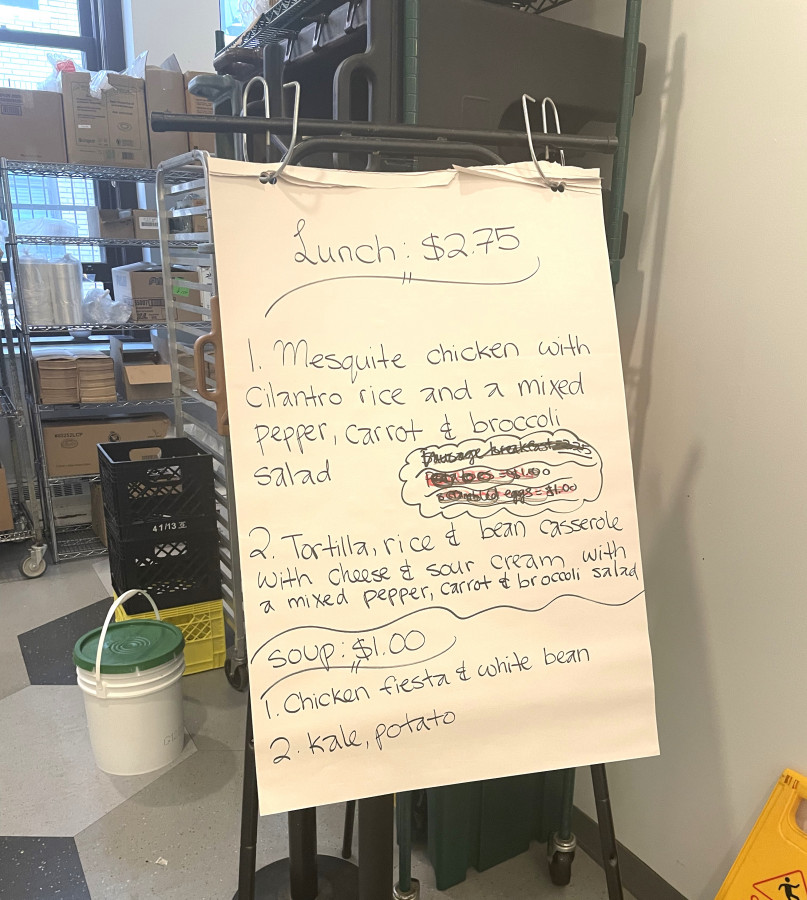 Lunch: $2.75
1. Mesquite chicken with
Cilantro rice and a mixed
pepper, carrot & broccoli
salad
Sausage breakfast
potatoes = $1.00
scrambled eggs = $1.00
2. Tortilla, rice & bean casserole
with cheese & sour cream with
a mixed pepper, carrot & broccoli salad
soup: $1.00
1. Chicken fiesta & white bean
2. kale, potato
41/13